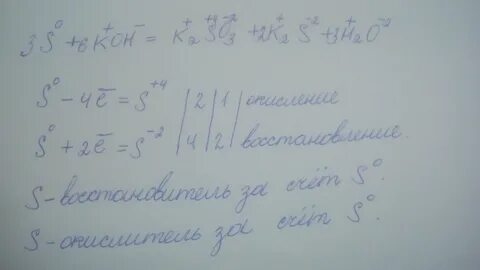 3S⁰ + 6K⁺OH⁻ = K₂⁺S⁺⁴O₃⁻² + 2K₂⁺S⁻² + 3H₂⁺O⁻²
S⁰ - 4ē = S⁺⁴ | 2 | 1 | окисление
S⁰ + 2ē = S⁻² | 4 | 2 | восстановление.
S - восстановитель за счёт S⁰.
S - окислитель за счёт S⁰.